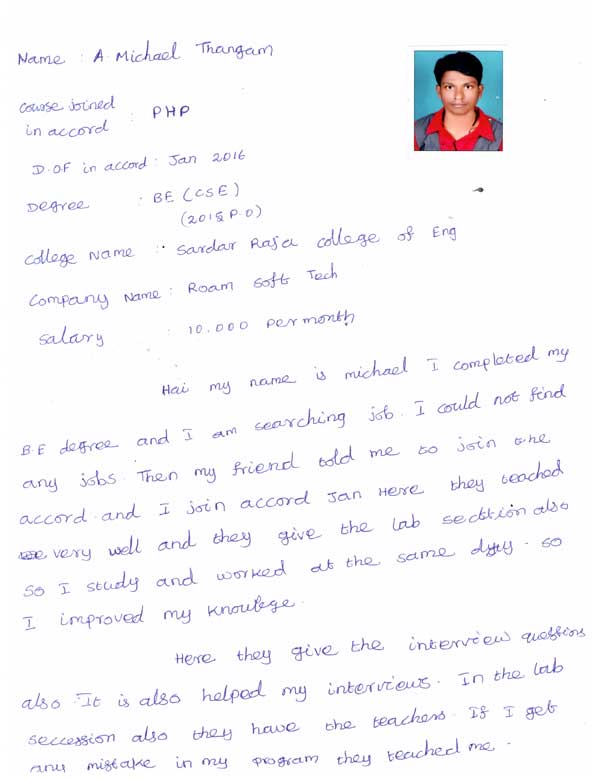 Name : A. Michael Thangam
Course joined
in accord : PHP
D.OF in accord : Jan 2016
Degree : BE (CSE)
(2015 P.O)
College Name : Sardar Raja college of Eng
Company Name : Roam Soft Tech
Salary : 10.000 per month
Hai my name is michael I completed my
B.E degree and I am searching job. I could not find
any jobs. Then my friend told me to join the
accord. and I join accord Jan Here they teached
very well and they give the lab secttion also
so I study and worked at the same . so
I improved my knowlege.
Here they give the interview questions
also. It is also helped my interviews. In the lab
seccession also they have the teachers. If I get
any mistake in my program they teached me.